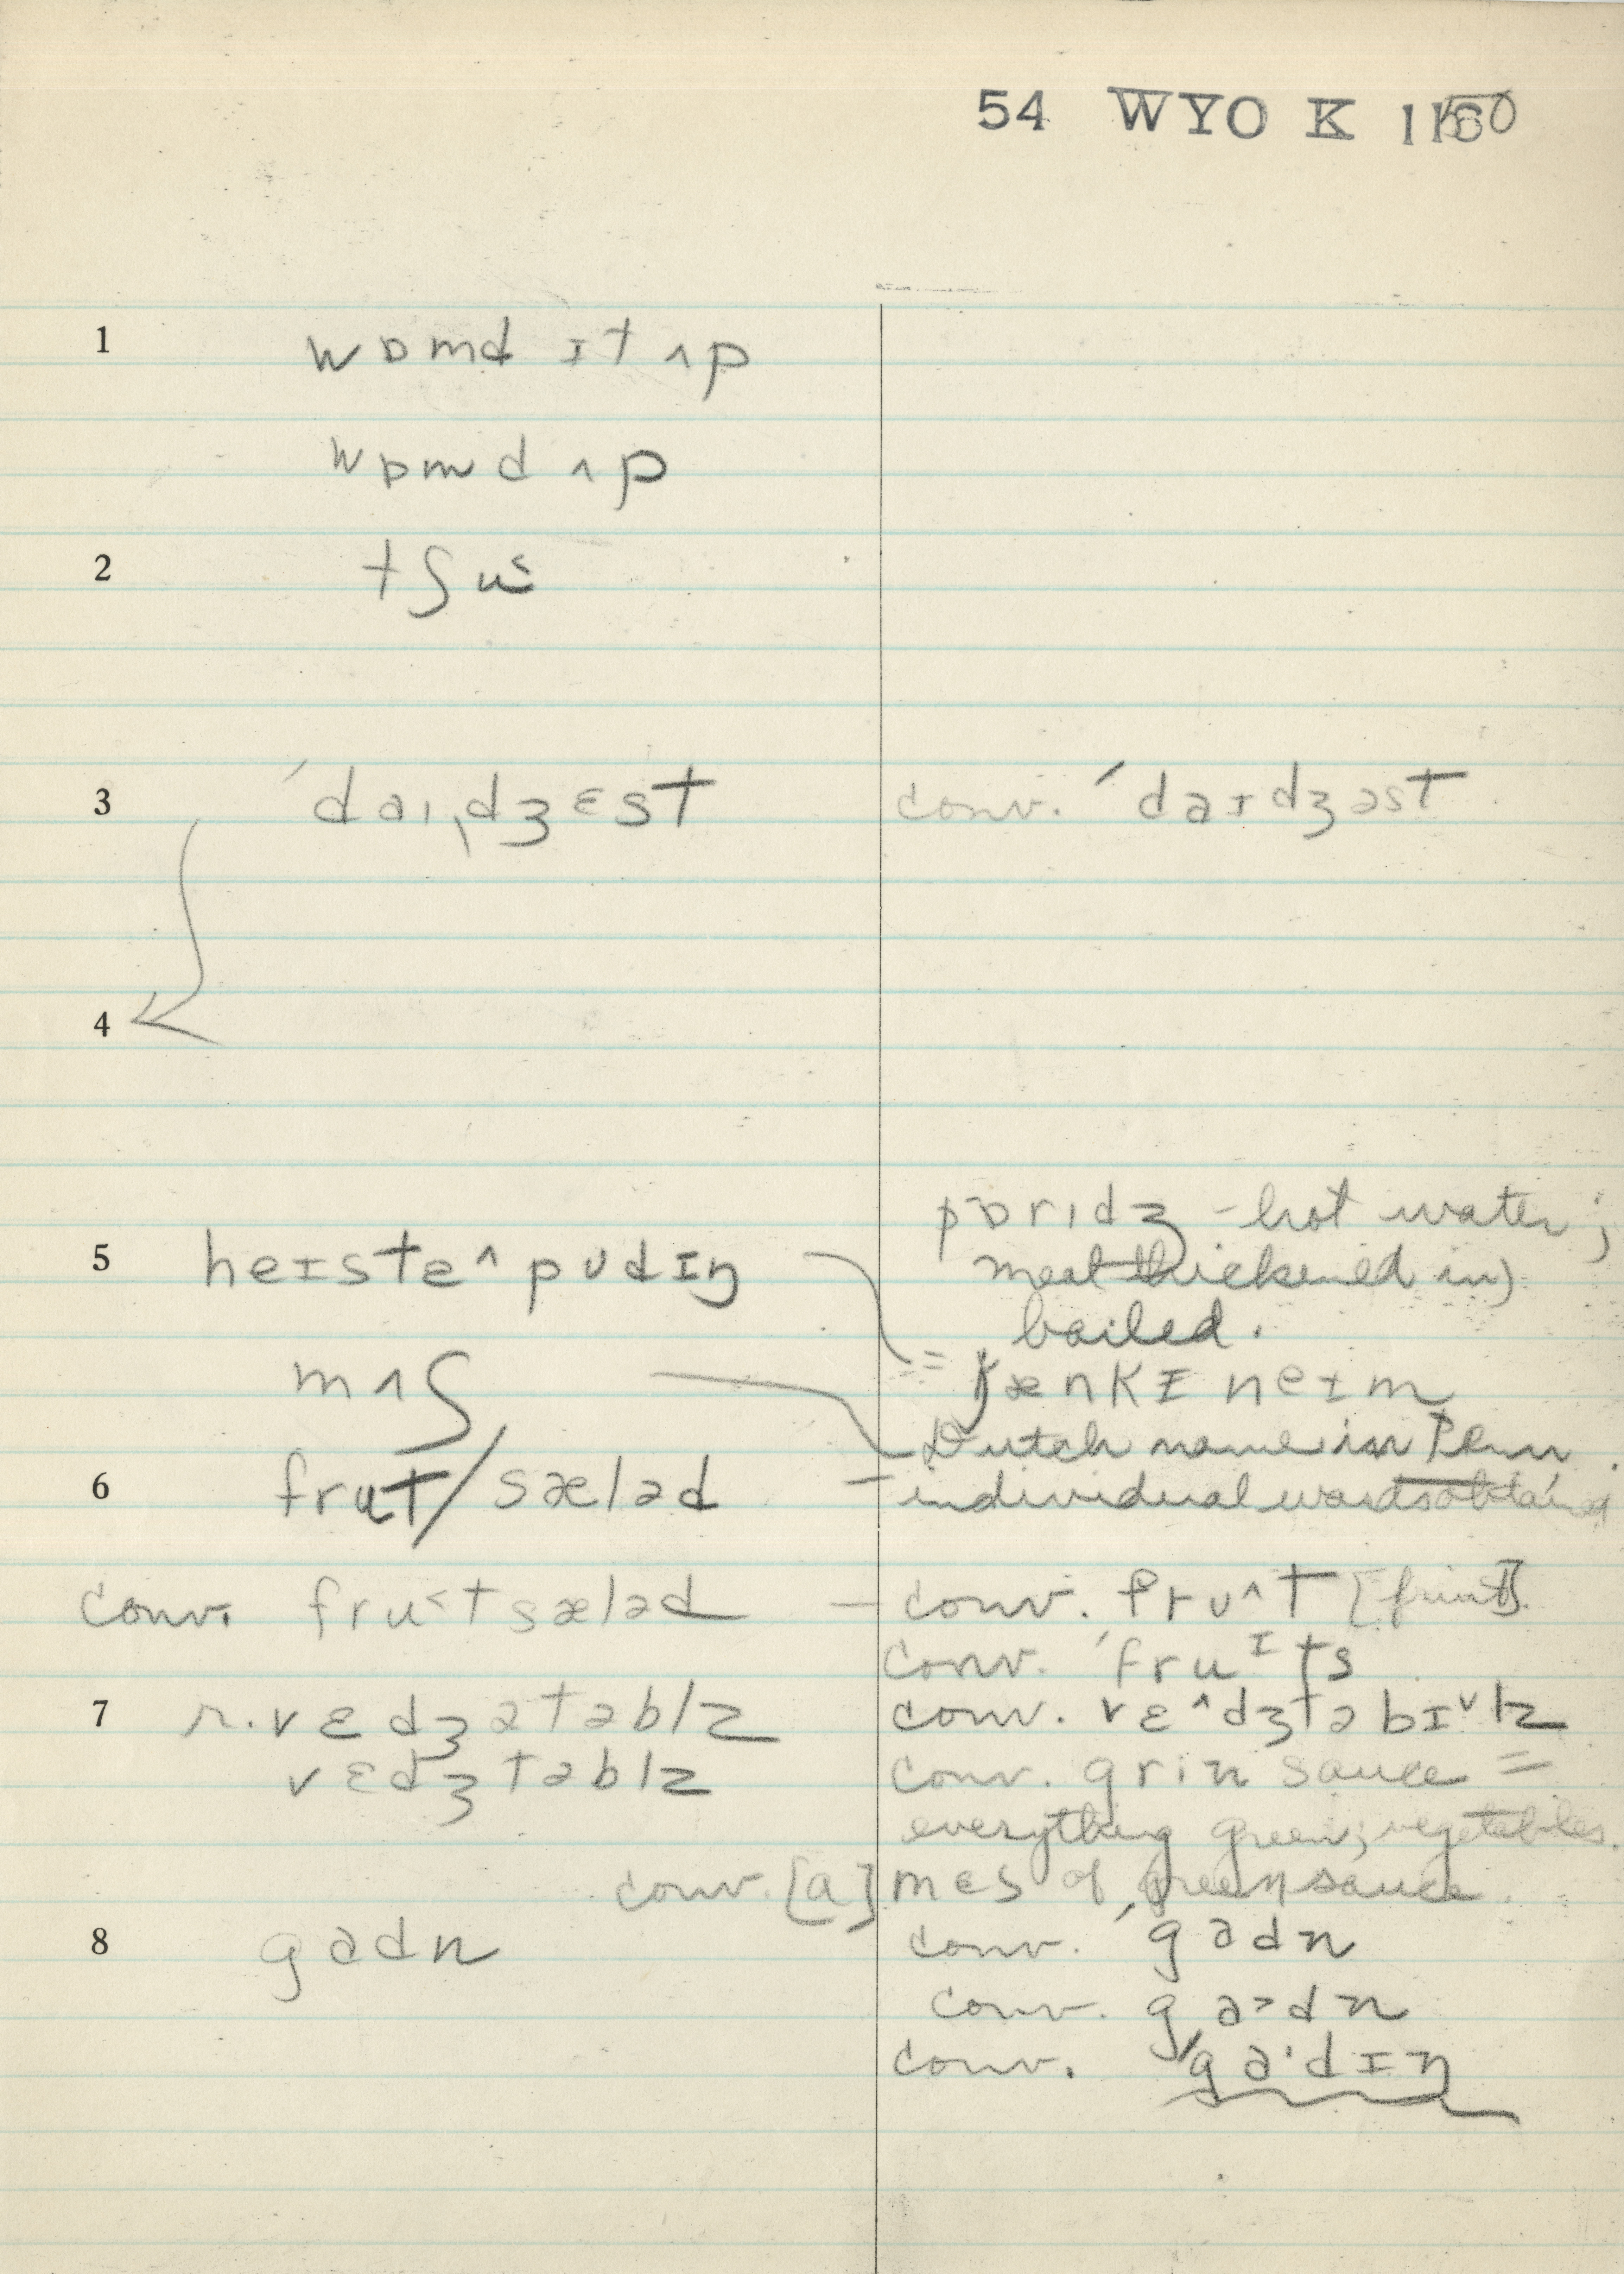 54 WYO K 1160
1 wɒmd ɪt ʌp
wɒmd ʌp
2 tʃu˂
3 ˊdaɪˌdʒɛst conv. ˊdaɪdʒəst
4
pɒrɪdʒ - hot water;
5 heɪstɛ^ pʊdɪŋ meal thickened in)
boiled.
mʌʃ = jænkɪ neɪm
Dutch name in Penn.
6 frut/sæləd - individual words obtained
conv. fru˂tsæləd - conv. frʊ^t [fruit].
conv. ˊfruᶦts
7 r. vɛdʒətəblz conv. vɛ^dʒtəbɪ˅lz
vɛdʒtəblz conv. grin sauce =
everything green; vegetables.
conv. [a] mɛs of green sauce.
8 gadn conv. ˊgadn
conv. ga˃dn
conv. ˊga·dɪŋ